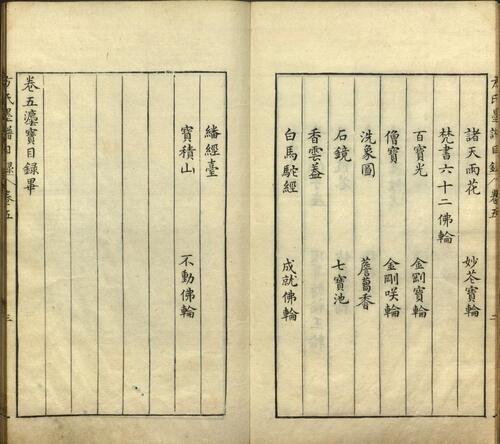 諸天雨花 妙芯寶輪
梵書六十二佛輪
百寶光 金剛寶輪
僧寶 金剛咲輪
洗象圖 薝蔔香
石鏡 七寶池
香雲蓋
白馬駝經 成就佛輪
方氏墨譜目錄 卷五 二
繙經臺
寶積山 不動佛輪
卷五瀍寶目錄畢
方氏墨譜目錄 卷五 三